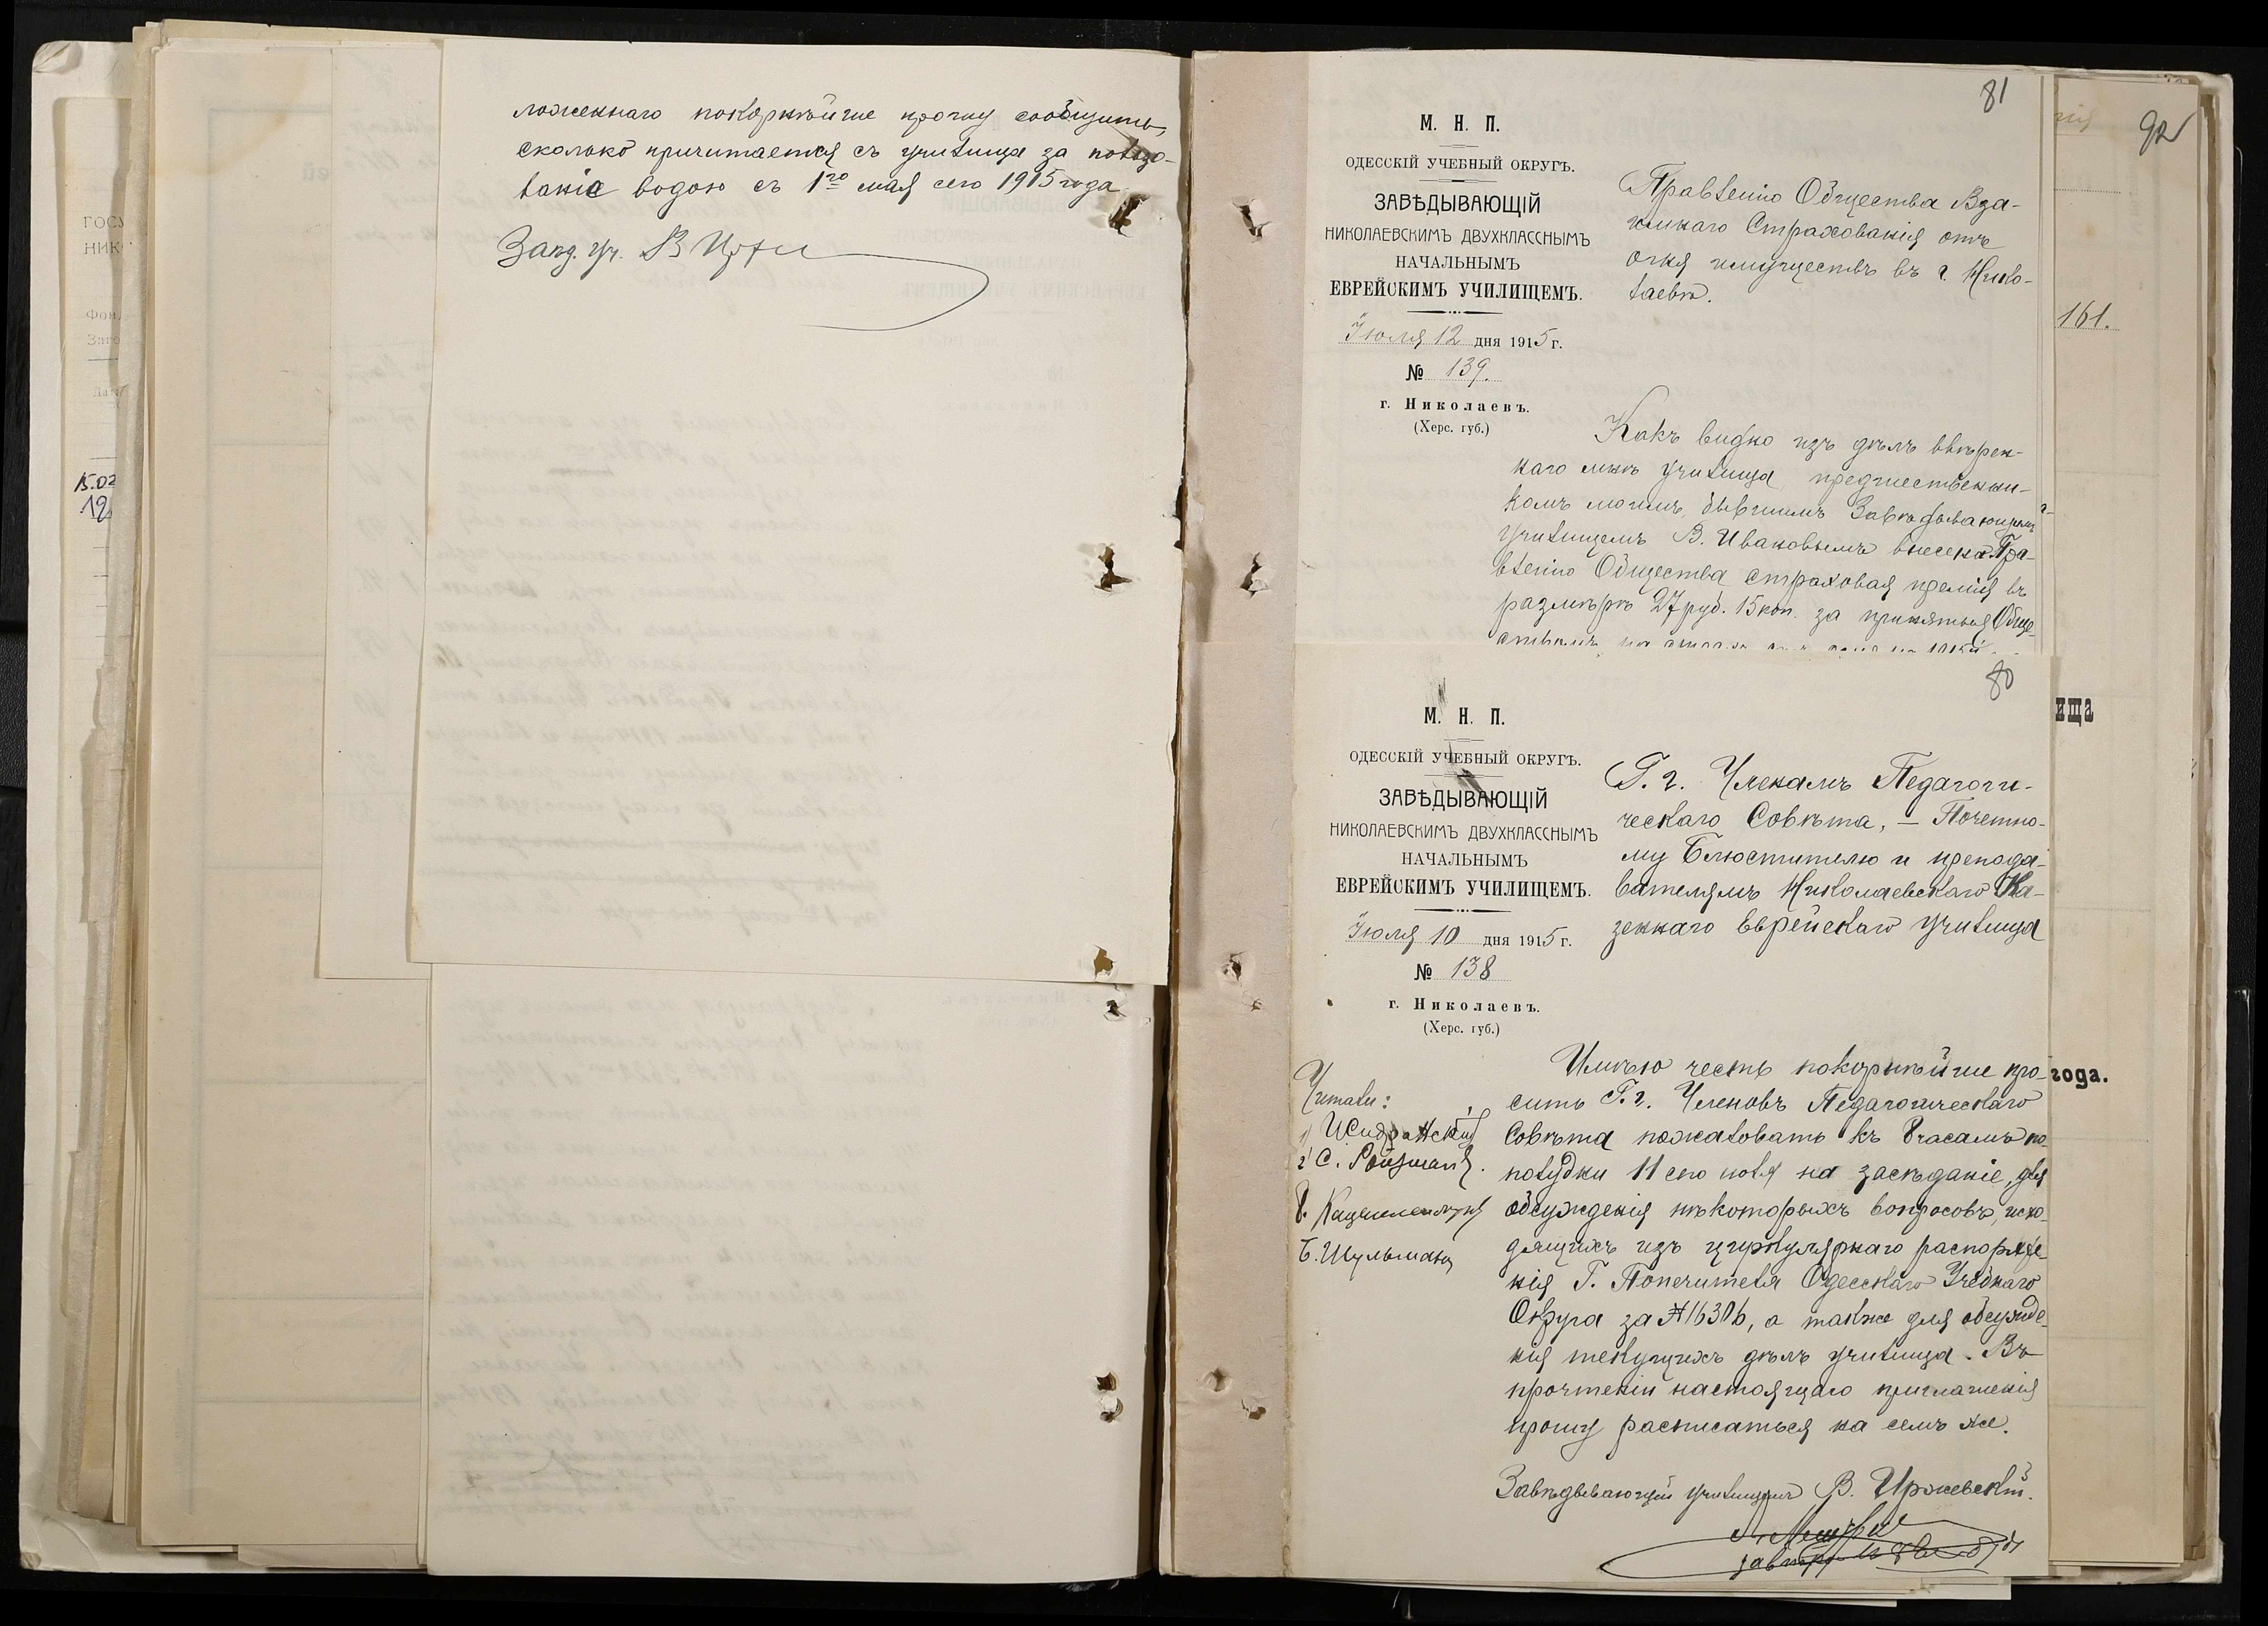 ложеннаго покорнѣйше прошу сообщить,
сколько причитается съ училища за пользо-
ваніе водою съ 1го мая сего 1915 года.
Завд. уч. В
81
М. Н. П.
ОДЕССКІЙ УЧЕБНЫЙ ОКРУГЪ.
ЗАВѢДЫВАЮЩІЙ
НИКОЛАЕВСКИМЪ ДВУХКЛАССНЫМЪ
НАЧАЛЬНЫМЪ
ЕВРЕЙСКИМЪ УЧИЛИЩЕМЪ.
Іюля 12 дня 1915 г.
№ 139.
г. Николаевъ.
(Херс. губ.)
Правленію Общества Вза-
имнаго Страхованія отъ
огня имуществъ въ г. Нико-
лаевѣ.
Какъ видно изъ дѣлъ ввѣрен-
наго мнѣ училища, предшественни-
комъ моимъ, бывшимъ Завѣдывающимъ
училищемъ В. Ивановымъ внесена Пра-
вленію Общества страховая премія въ
размѣрѣ 27 руб. 15 коп. за принятыя Обще-
ствомъ на
80
М. Н. П.
ОДЕССКІЙ УЧЕБНЫЙ ОКРУГЪ.
ЗАВѢДЫВАЮЩІЙ
НИКОЛАЕВСКИМЪ ДВУХКЛАССНЫМЪ
НАЧАЛЬНЫМЪ
ЕВРЕЙСКИМЪ УЧИЛИЩЕМЪ.
Іюля 10 дня 1915 г.
№ 138
г. Николаевъ.
(Херс. губ.)
Г. г. Членамъ Педагоги-
ческаго Совѣта, – Почетно-
му Блюстителю и препода-
вателямъ Николаевскаго Ка-
зеннаго Еврейскаго училища
Имѣю честь покорнѣйше про-
сить Г. г. Членовъ Педагогическаго
Совѣта пожаловать къ 8 часамъ по-
полудни 11 сего іюля на засѣданіе, для
обсужденія нѣкоторыхъ вопросовъ, исхо-
дящихъ изъ циркулярнаго распоряже-
нія Г. Попечителя Одесскаго Учебнаго
Округа за № 16306, а также для обсужде-
нія текущихъ дѣлъ училища. Въ
прочтеніи настоящаго приглашенія
прошу расписаться на семъ же.
Завѣдывающій училищемъ В. Иржевскій.
Читали:
1)
2) С. Ройзманъ.
Б. Шульманъ
92
161.
ища
года.
ГОСУ
НИК
Фон
15.02